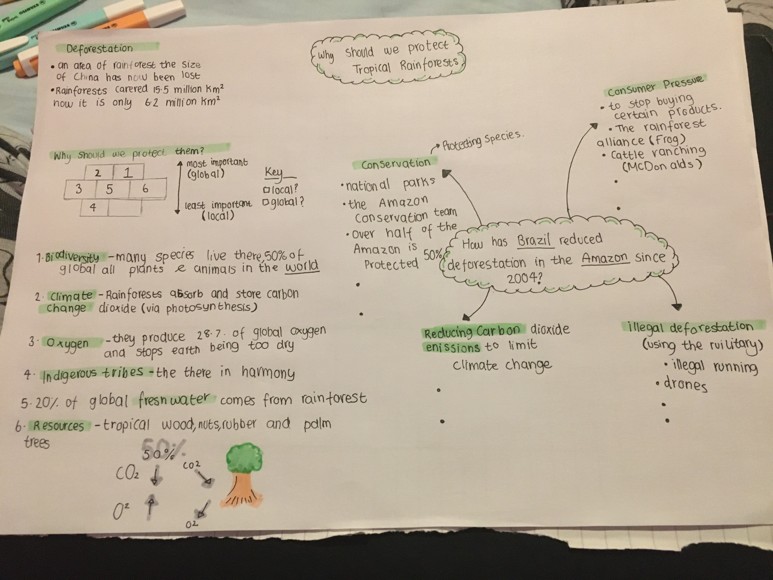 Why should we protect
Tropical Rainforests
Deforestation
• an area of rainforest the size
of China has now been lost
• Rainforests carered 15.5 million Km²
now it is only 6.2 million Km²
Why should we protect them?
2 1
3 5 6
4
most important
(global)
least important
(local)
Key
local?
global?
1. Biodiversity - many species live there, 50% of
global all plants & animals in the world
2. Climate - Rainforests absorb and store carbon
change dioxide (via photosynthesis)
3. Oxygen - they produce 28%. of global oxygen
and stops earth being too dry
4. Indigerous tribes - the there in harmony
5. 20% of global freshwater comes from rainforest
6. Resources - tropical wood, nuts, rubber and palm
trees
50%
CO₂ CO²
O² O²
Conservation
Protecting Species.
• national parks
• the Amazon
Conservation team
• over half of the
Amazon is 50%
Protected
Consumer Pressue
• to stop buying
certain products.
• The rainforest
alliance (frog)
• Cattle ranching
(McDonalds)
How has Brazil reduced
deforestation in the Amazon since
2004?
Reducing Carbon dioxide
emissions to limit
climate change
Illegal deforestation
(using the military)
• illegal running
• drones